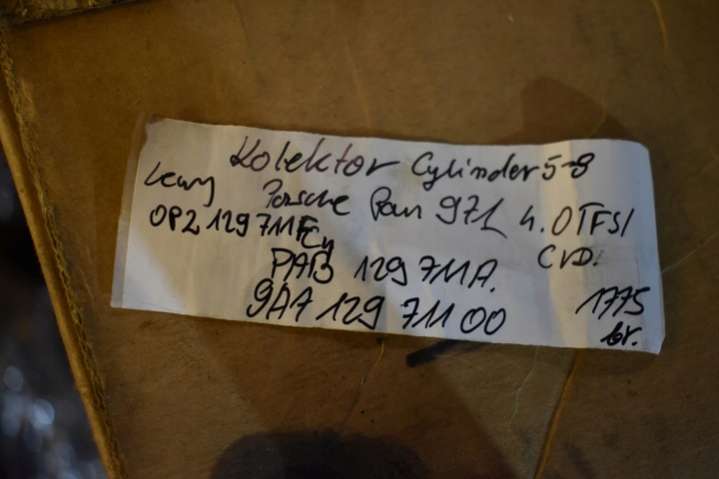 Kolektor Cylinder 5-8
Lewy Porsche Pan 971 4.0TFSI
0P2 129 711F CVD.
PAB 129 711A.
9A7 129 711 00 1775
br.